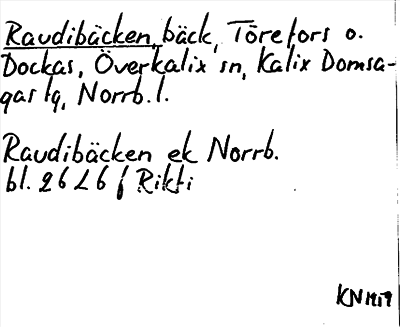 Raudibäcken, bäck, Törefors o.
Dockas, Överkalix sn, Kalix Domsa-
gas lg, Norrb. l.
Raudibäcken ek Norrb.
bl. 26 L 6 f Rikti
KN 1919